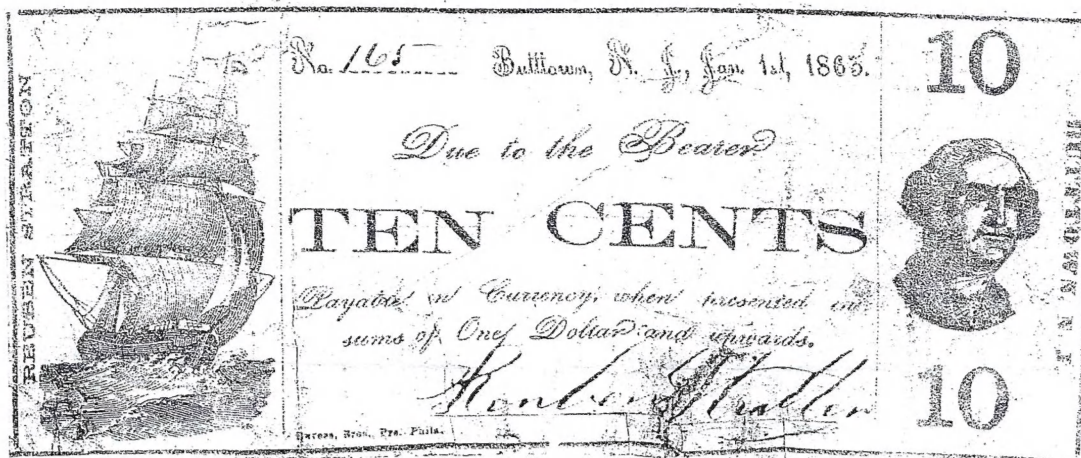 REUBEN STRATTON
No. 165 Butttown, N. J., Jan. 1st, 1863.
Due to the Bearer
TEN CENTS
Payable in Currency, when presented in
sums of One Dollar and upwards.
Reuben Stratton
Bros., Prs. Phila.
10
10